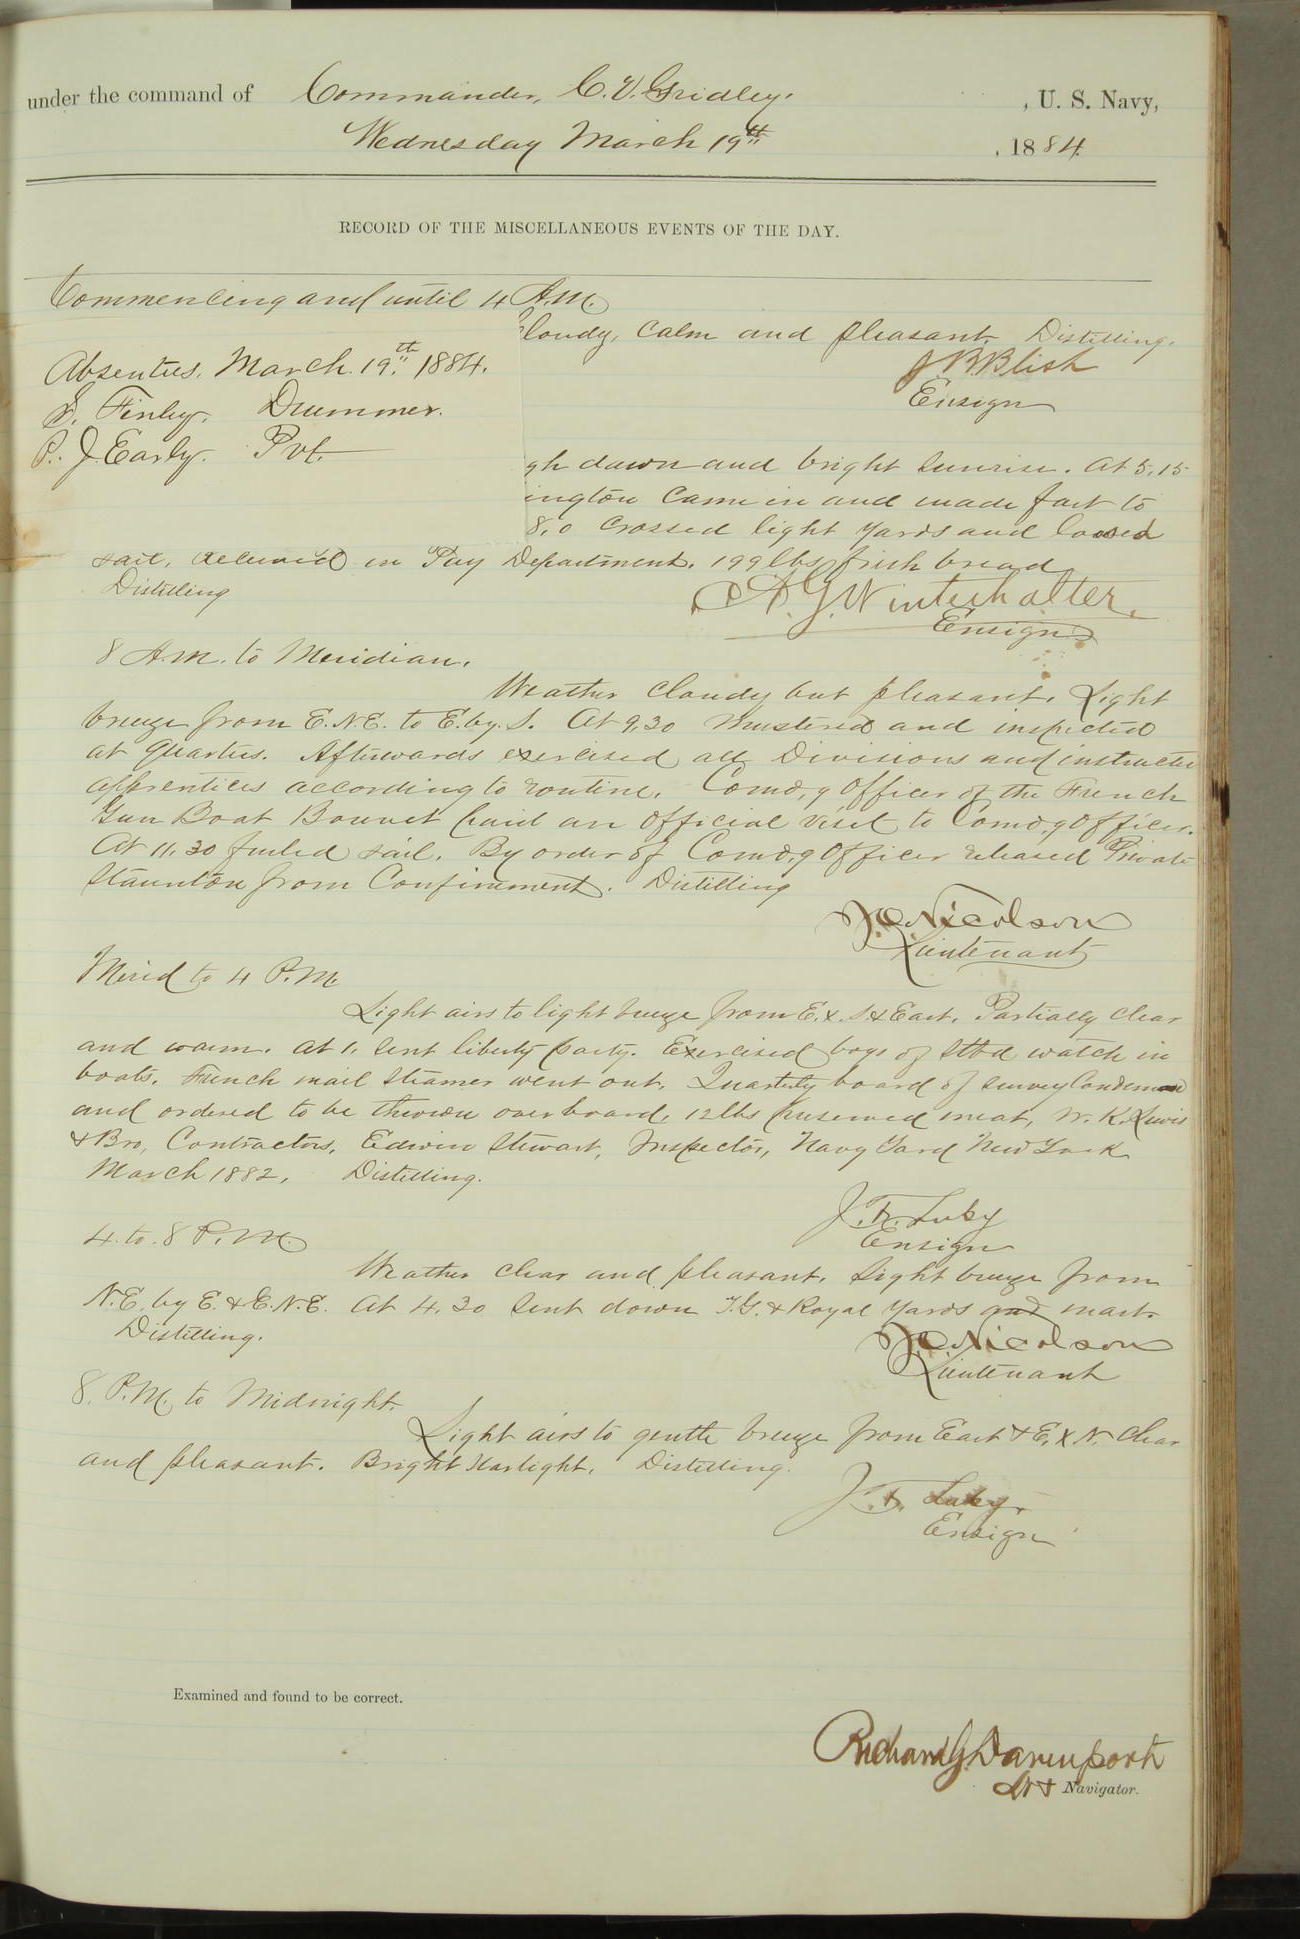 under the command of Commander, C. V. Gridley. , U. S. Navy,
Wednesday March 19th , 1884.
RECORD OF THE MISCELLANEOUS EVENTS OF THE DAY.
Commencing and until 4 A.M.
Cloudy, calm and pleasant. Distilling.
J B Blish
Ensign
Absentees, March 19th 1884.
S. Finley, Drummer.
P. J. Early. Pvt.
gh dawn and bright sunrise. At 5.15
ington came in and made fast to
8.0 crossed light yards and loosed
sail, received in Pay Department. 199 lbs fresh bread
Distilling
A. G. Winterhalter.
Ensign
8 A.M. to Meridian.
Weather cloudy but pleasant. Light
breeze from E.N.E. to E. by. S. At 9.30 mustered and inspected
at quarters. Afterwards exercised all Divisions and instructed
apprentices according to routine. Comd,g Officer of the French
Gun Boat Bouvet paid an official visit to Comd,g Officer.
At 11.30 furled sail. By order of Comd,g Officer released Private
Staunton from Confinement. Distilling
Nicolson
Lieutenant
Merid to 4 P.M.
Light airs to light breeze from E. x. S & East. Partially clear
and warm. At 1. sent liberty party. Exercised boys of Stbd watch in
boats. French mail steamer went out. Quarterly board of survey Condemned
and ordered to be thrown overboard, 12 lbs preserved meat, W. K. Lewis
& Bro, Contractors, Edwin Stewart, Inspector, Navy Yard New York
March 1882. Distilling.
J. F. Luby
Ensign
4. to. 8 P.M.
Weather clear and pleasant. Light breeze from
N.E. by E. & E.N.E. At 4.30 sent down T.G. & Royal yards and mast.
Distilling.
Nicolson
Lieutenant
8. P.M. to Midnight.
Light airs to gentle breeze from East & E. x N. Clear
and pleasant. Bright starlight. Distilling.
J. F. Luby.
Ensign
Examined and found to be correct.
Richard G Davenport
Lt & Navigator.